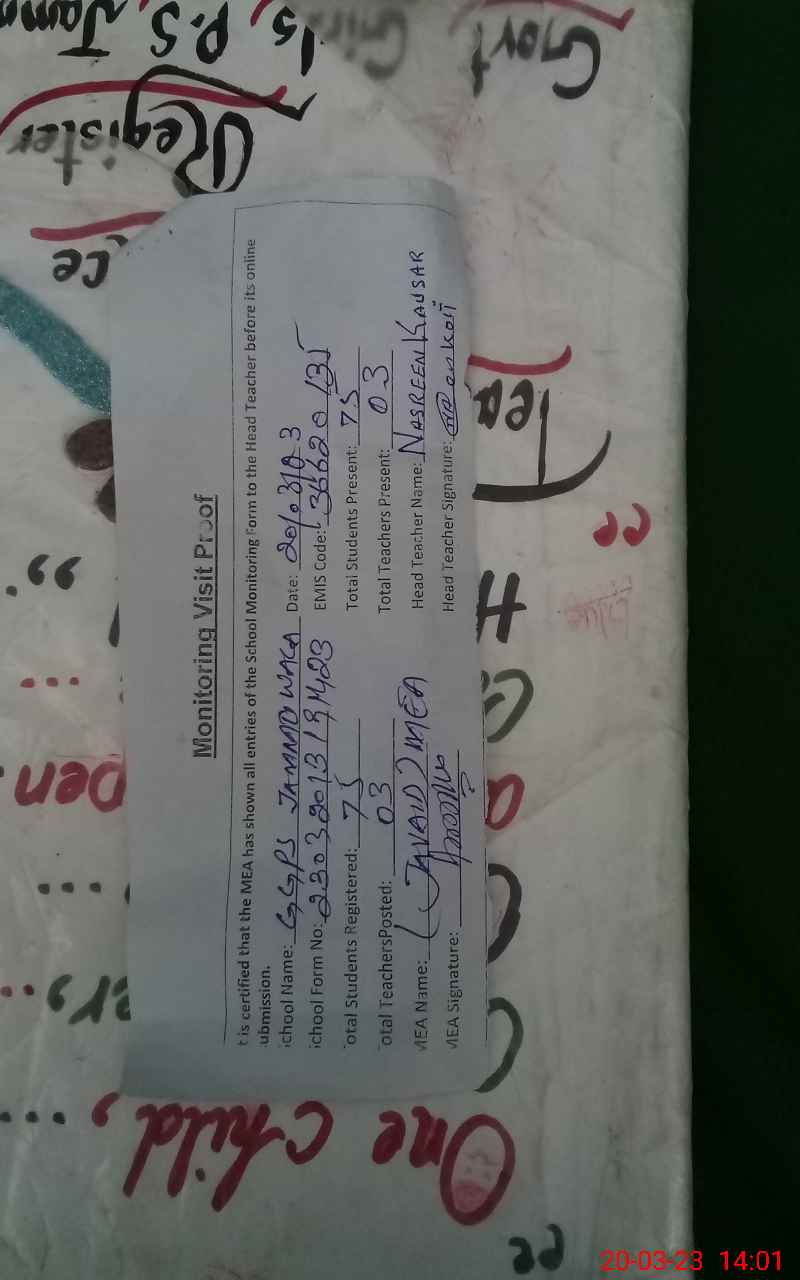 Govt Girls, P.S, Jam
Register
ce
Tea
Monitoring Visit Proof
t is certified that the MEA has shown all entries of the School Monitoring Form to the Head Teacher before its online
ubmission.
chool Name: GGPS JAMMDWALA Date: 20/03/03
chool Form No: 23032013191423 EMIS Code: 36620135
otal Students Registered: 75 Total Students Present: 75
otal TeachersPosted: 03 Total Teachers Present: 03
MEA Name: (JAVAID) MEA Head Teacher Name: NASREEN KAUSAR
MEA Signature: Head Teacher Signature:
One child,
er,
pen
20-03-23 14:01